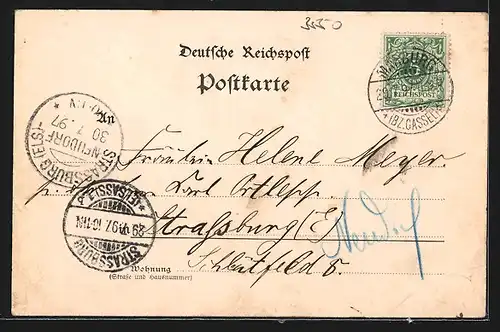 3550
Deutsche Reichspost
Postkarte
MARBURG
REICHSPOST
*(BZ.CASSEL)*
An
Fräulein Helene Meyer
p. Karl Ortlepp
Straßburg (E)
Neudorf
Schlutfeld 5.
Wohnung
(Straße und Hausnummer)
STRASSBURG (ELS)
NEUDORF
30 7 97
STRASSBURG
(ELSASS)
29 7 97 10-11N